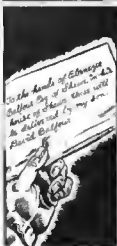 To the hands of Ebenezer
Balfour Esq of Shaws in his
house of Shaws these will
be delivered by my son
David Balfour